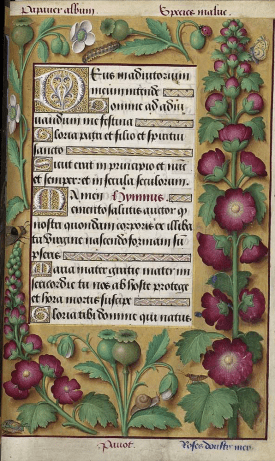 Papauer album. Species malue.
Deus in adiutorium
meum intende
Domine ad adiu
uandum me festina
Gloria patri et filio et spiritui
sancto
Sicut erat in principio et nūc
et semper: et in secula seculorum.
Amen Hymnus.
Memento salutis auctor ꝙ
nostri quondam corporis ex illiba
ta virgine nascendo formam sū
pseris
Maria mater gratie mater mi
sericordie tu nos ab hoste protege
et hora mortis suscipe
Gloria tibi domine qui natus
Pauot. Roses doultre mer